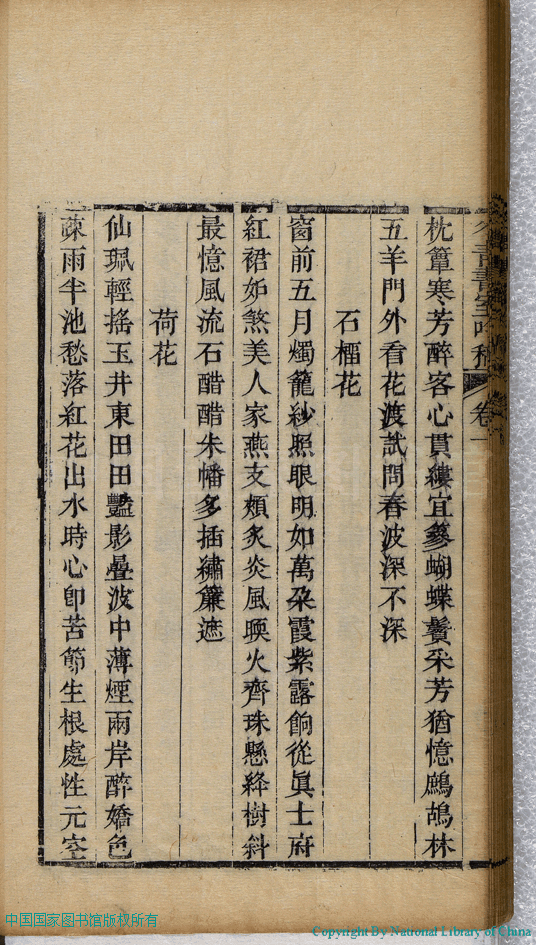 冬青書室吟稿 卷一
枕簟寒芳醉客心貫縷宜簪蝴蝶鬢采芳猶憶鷓鴣林
五羊門外看花渡試問春波深不深
石榴花
窗前五月燭籠紗照眼明如萬朶霞紫露餉從眞士府
紅裙妬煞美人家燕支頰炙炎風暎火齊珠懸絳樹斜
最憶風流石醋醋朱幡多插繡簾遮
荷花
仙珮輕搖玉井東田田豔影疊波中薄煙兩岸醉嬌色
疎雨半池愁落紅花出水時心卽苦節生根處性元空
中国国家图书馆版权所有
Copyright By National Library of China